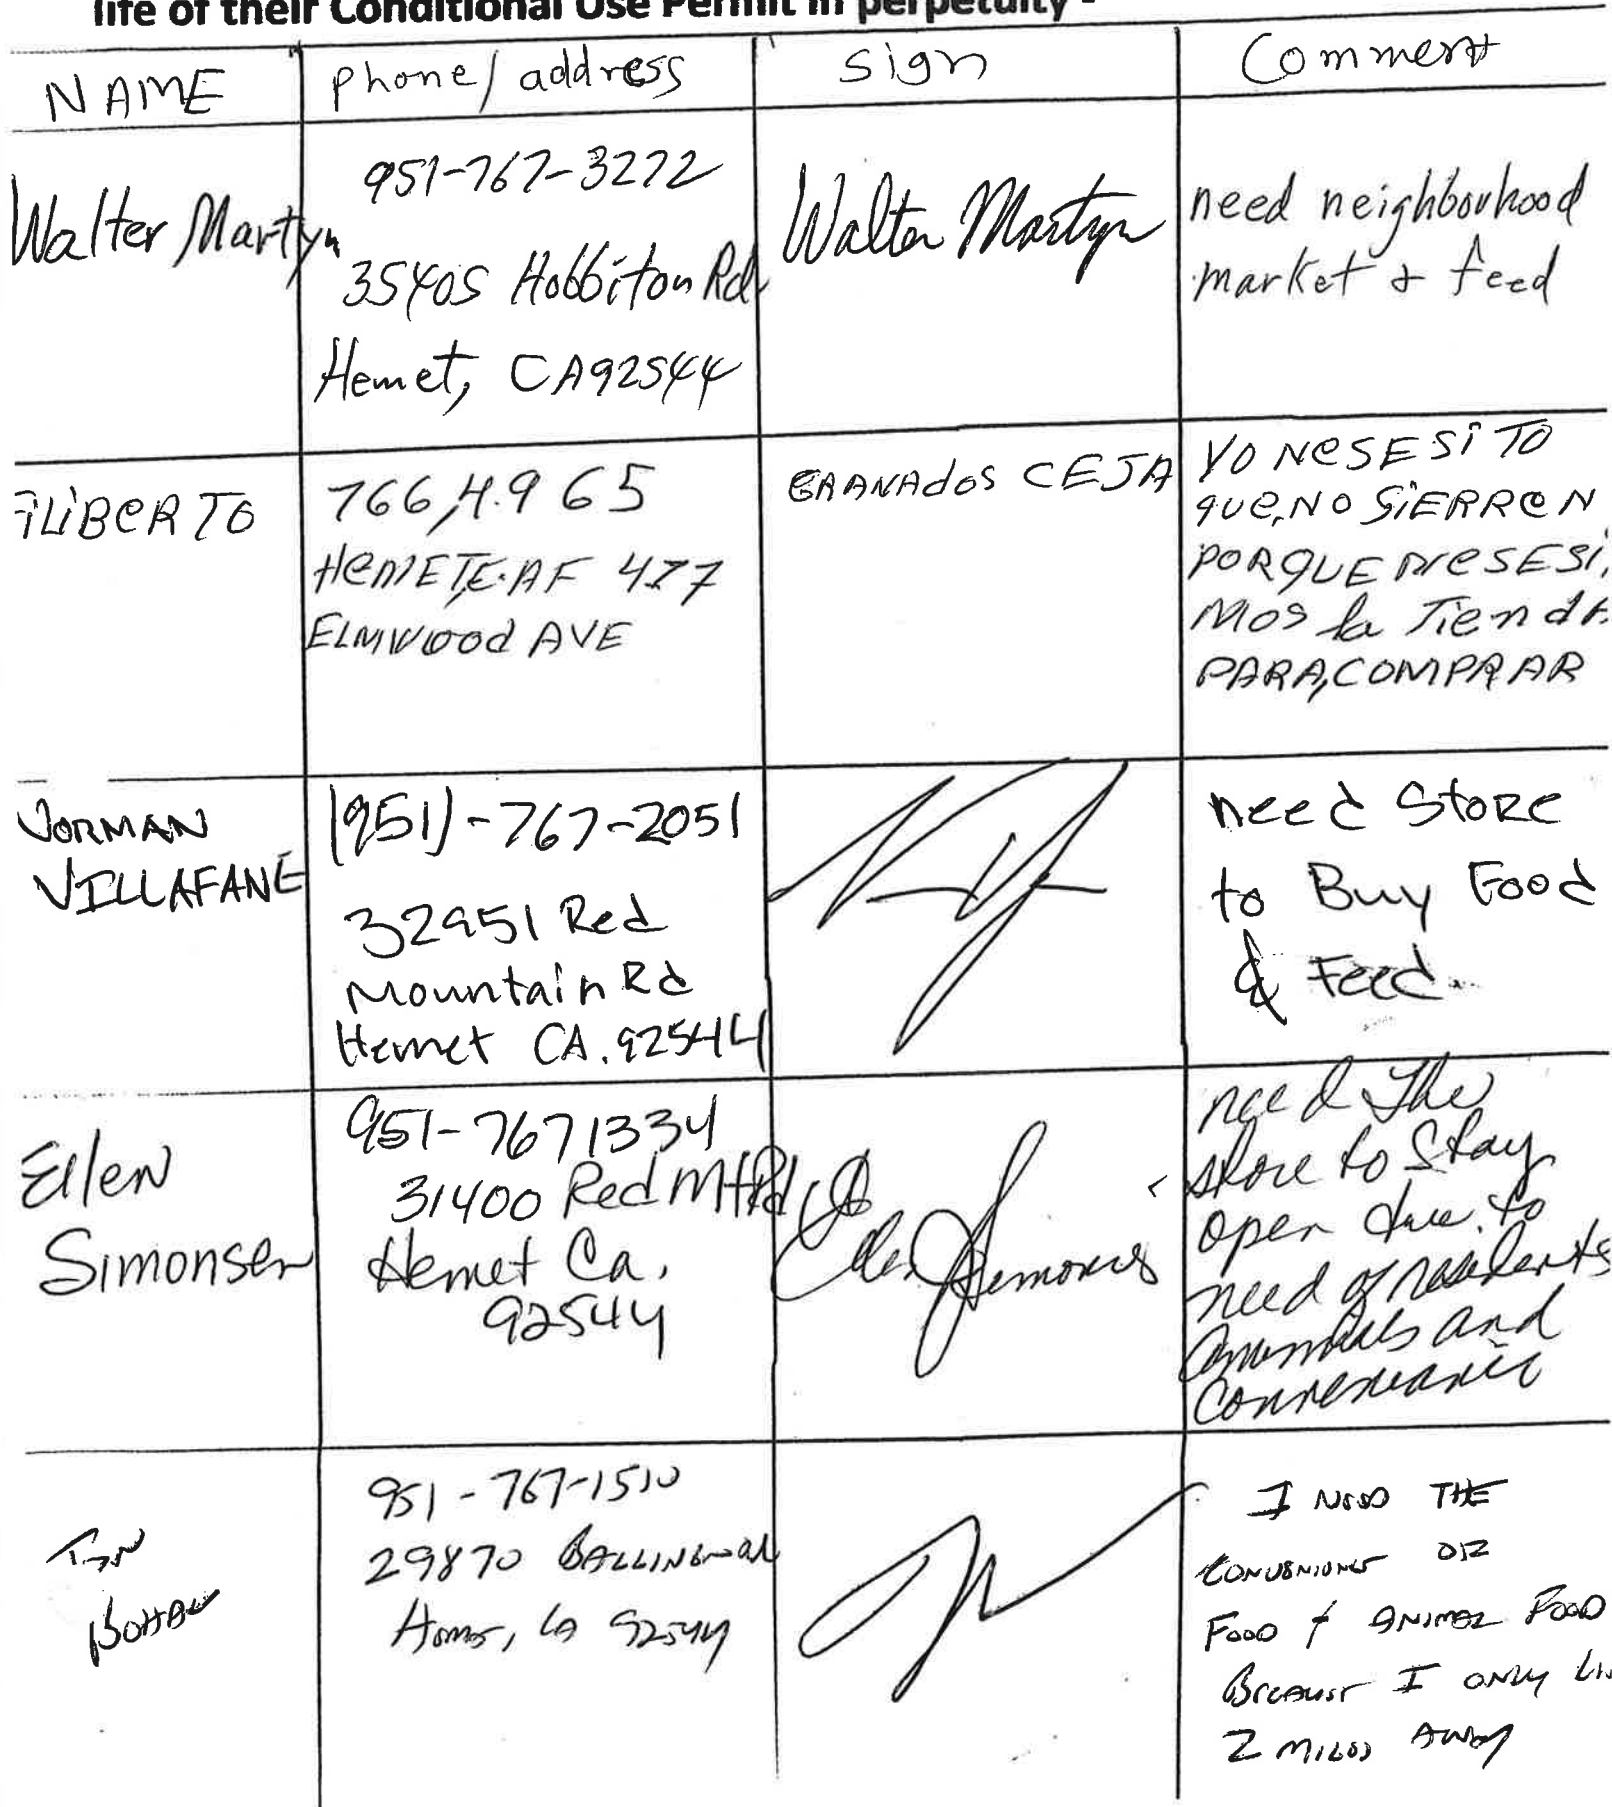 life of their Conditional Use Permit in perpetuity -
NAME phone/ address Sign Comment
Walter Martyn
951-767-3272
35405 Hobbiton Rd
Hemet, CA 92544
Walter Martyn
need neighbourhood
market & feed
FiLiBeRTO
766,4.9 65
ELMWOOD AVE
GRANADOS CEJA
YO NeSESiTO
QUe,NO SiERReN
PORQUE NeSESi,
MOS la Tienda
PARA,COMPRAR
VILLAFANE
(951)-767-2051
32951 Red
Mountain Rd
Hemet CA. 92544
need Store
to Buy Food
& Feed.
Ellen
Simonsen
951-767 1334
31400 Red Mt Rd
Hemet Ca.
92544
Ellen Simonsen
need The
store to Stay
open due to
need of residents
animals and
951-767-1510
29870
CA 92544
I NEED THE
CONVENIENCE OF
FOOD & ANIMAL FOOD
BECAUSE I ONLY
2 MILES AWAY